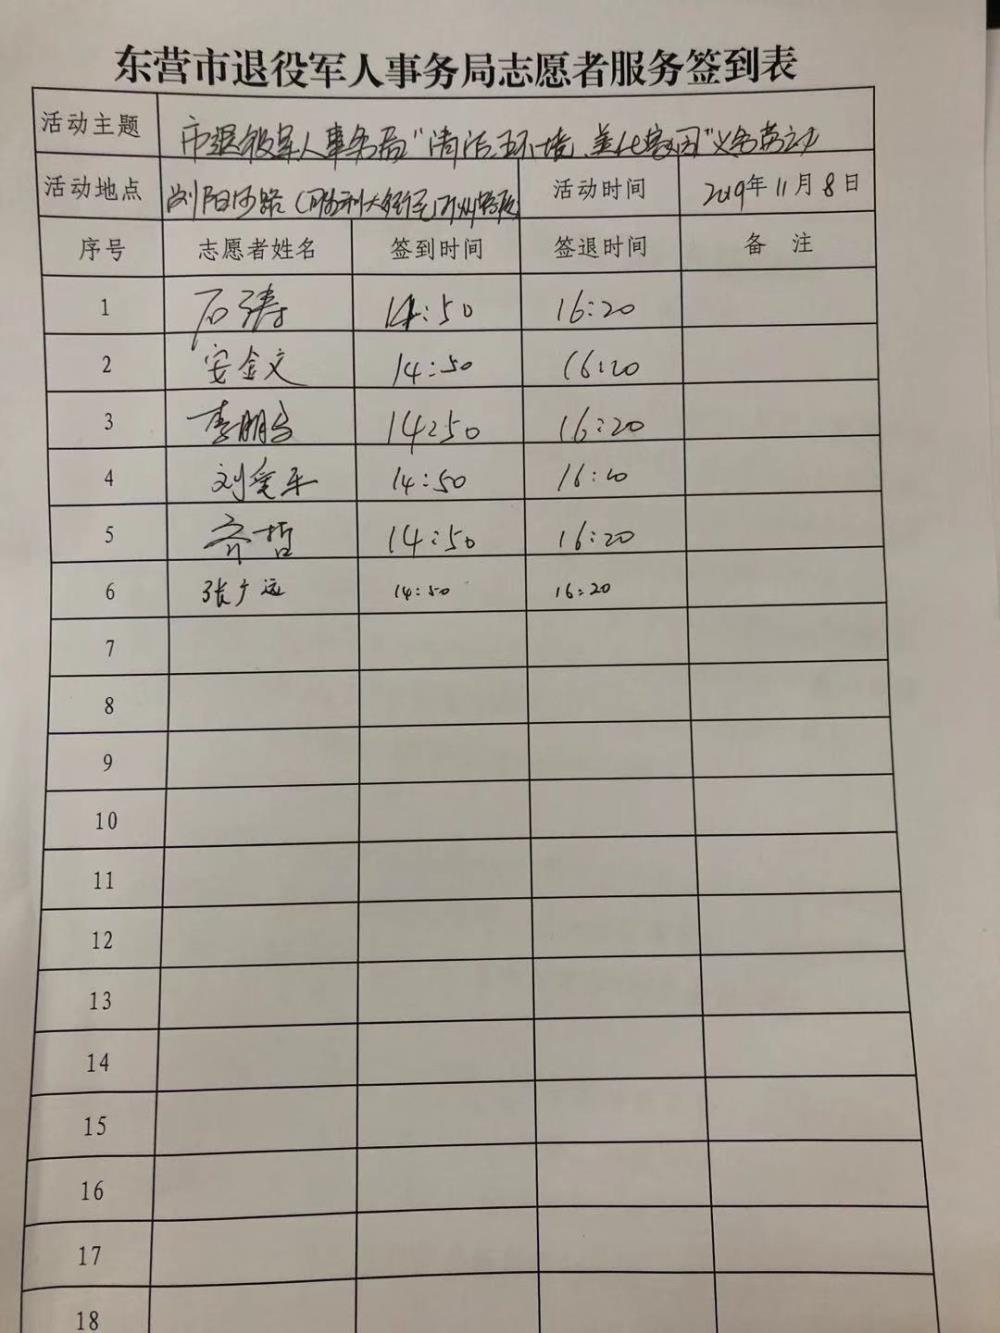 东营市退役军人事务局志愿者服务签到表
活动主题 市退役军人事务局"清洁环境、美化家园"义务劳动
活动地点 浏阳河路 活动时间 2019年11月8日
序号 志愿者姓名 签到时间 签退时间 备 注
1 石涛 14:50 16:20
2 安金文 14:50 16:20
3 李鹏 14:50 16:20
4 刘爱军 14:50 16:20
5 齐哲 14:50 16:20
6 张广远 14:50 16:20
7
8
9
10
11
12
13
14
15
16
17
18